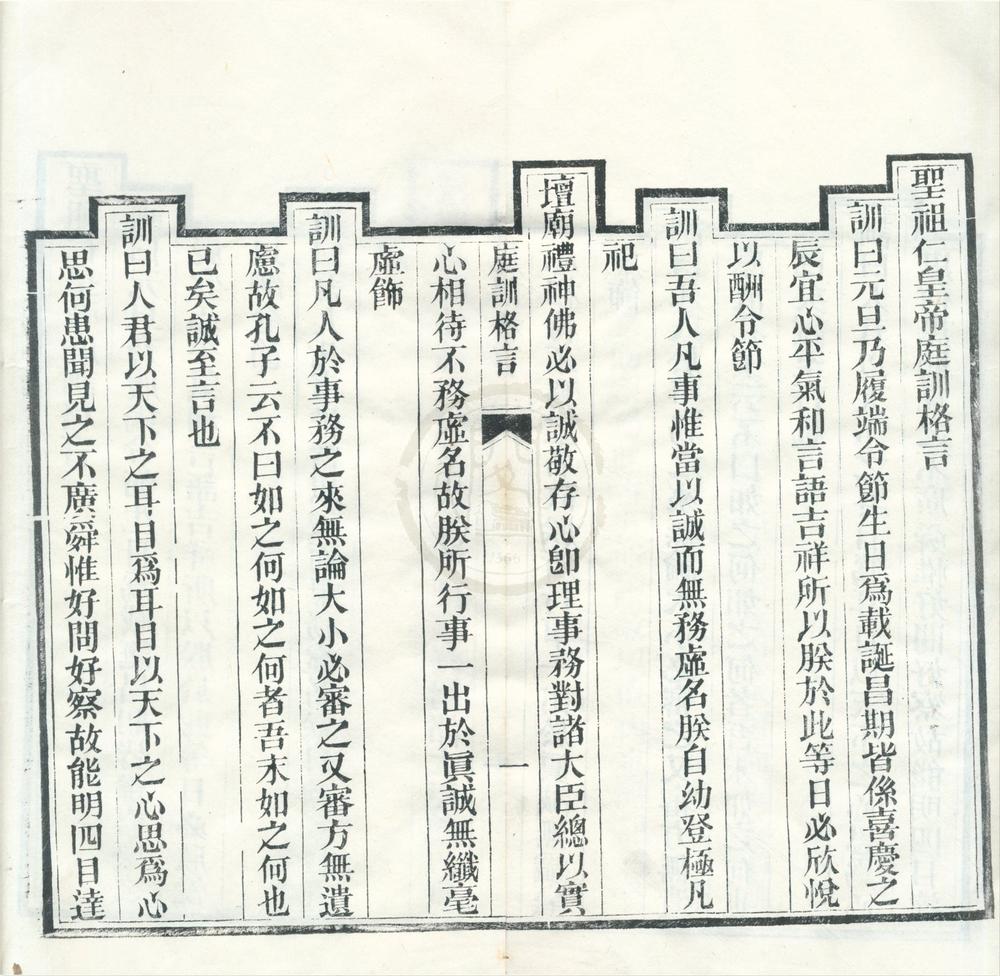 聖祖仁皇帝庭訓格言
訓曰元旦乃履端令節生日爲載誕昌期皆係喜慶之
辰宜心平氣和言語吉祥所以朕於此等日必欣悅
以酬令節
訓曰吾人凡事惟當以誠而無務虛名朕自幼登極凡
祀
壇廟禮神佛必以誠敬存心卽理事務對諸大臣總以實
庭訓格言
一
心相待不務虛名故朕所行事一出於眞誠無纖毫
虛飾
訓曰凡人於事務之來無論大小必審之又審方無遺
慮故孔子云不曰如之何如之何者吾末如之何也
已矣誠至言也
訓曰人君以天下之耳目爲耳目以天下之心思爲心
思何患聞見之不廣舜惟好問好察故能明四目達